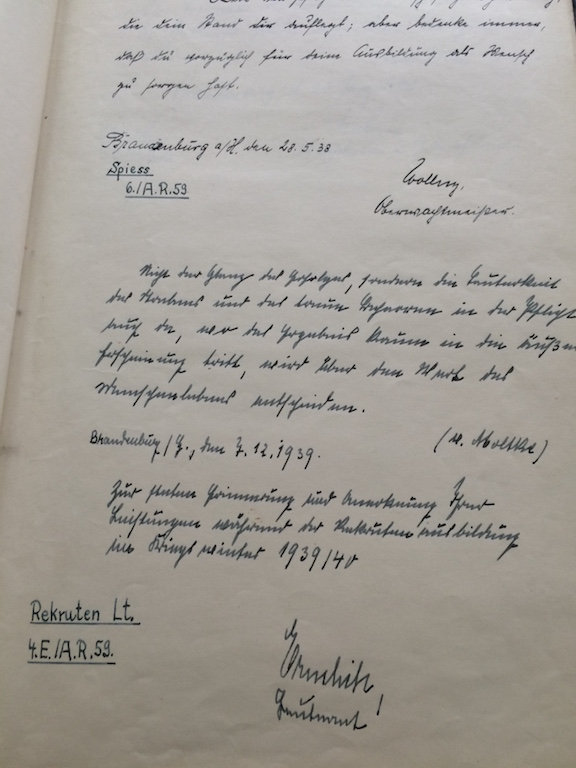 die dein Stand dir auflegt; aber bedenke immer,
daß du vorzüglich für deine Ausbildung als Mensch
zu sorgen hast.
Brandenburg a/H. den 28.5.38
Spiess
6./A.R.59
Oberwachtmeister.
Nicht der Glanz des Erfolges, sondern die Lauterkeit
des Strebens und das treue Beharren in der Pflicht
auch da, wo das Ergebnis kaum in die äuße
Erscheinung tritt, wird über den Wert des
Menschenlebens entscheiden.
Brandenburg/H., den 7.12.1939.
(v. Moltke)
Zur steten Erinnerung und Anerkennung Ihrer
Leistungen während der Rekrutenausbildung
im Kriegswinter 1939/40
Rekruten Lt.
4.E./A.R.59.
Leutnant!